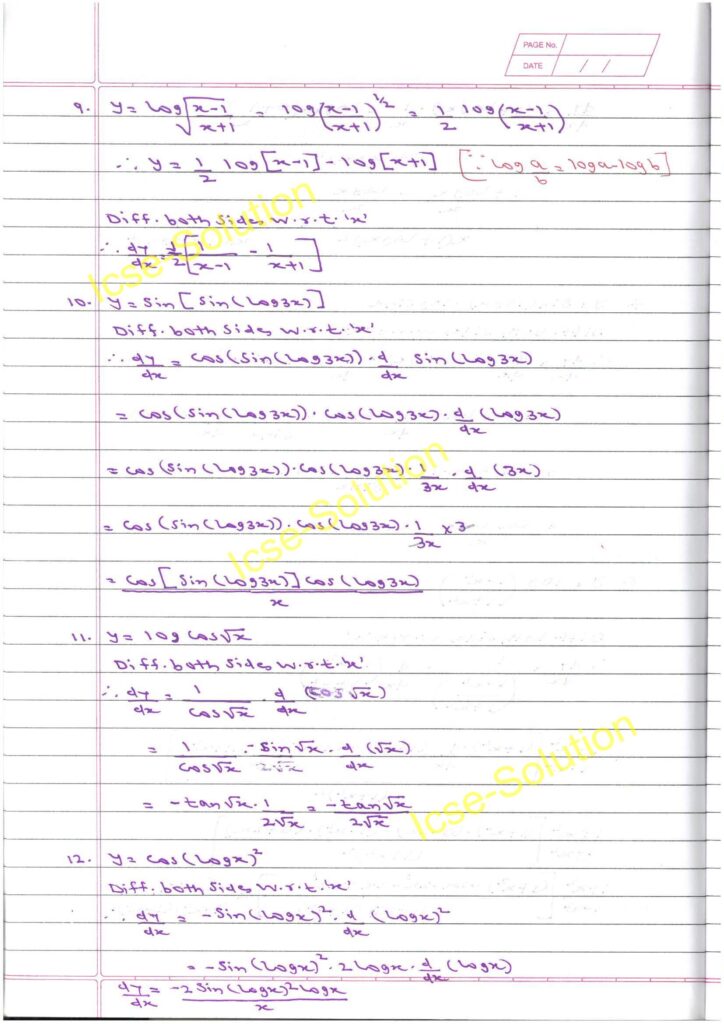 PAGE No.
DATE / /
9. y = log√(x-1/x+1) = log(x-1/x+1)^1/2 = 1/2 log(x-1/x+1)
∴ y = 1/2 log[x-1] - log[x+1] [∵ log a/b = log a - log b]
Diff. both sides w.r.t. 'x'
∴ dy/dx = 1/2 [1/x-1 - 1/x+1]
10. y = sin[sin(log3x)]
Diff. both sides w.r.t. 'x'
∴ dy/dx = cos(sin(log3x)) · d/dx sin(log3x)
= cos(sin(log3x)) · cos(log3x) · d/dx (log3x)
= cos(sin(log3x)) · cos(log3x) · 1/3x · d/dx (3x)
= cos(sin(log3x)) · cos(log3x) · 1/3x × 3
= cos[sin(log3x)] cos(log3x)/x
11. y = log cos√x
Diff. both sides w.r.t. 'x'
∴ dy/dx = 1/cos√x · d/dx (cos√x)
= 1/cos√x · -sin√x/2√x · d/dx (√x)
= -tan√x · 1/2√x = -tan√x/2√x
12. y = cos(logx)²
Diff. both sides w.r.t. 'x'
∴ dy/dx = -sin(logx)² · d/dx (logx)²
= -sin(logx)² · 2logx · d/dx (logx)
dy/dx = -2sin(logx)² logx/x
Icse-Solution
Icse-Solution
Icse-Solution